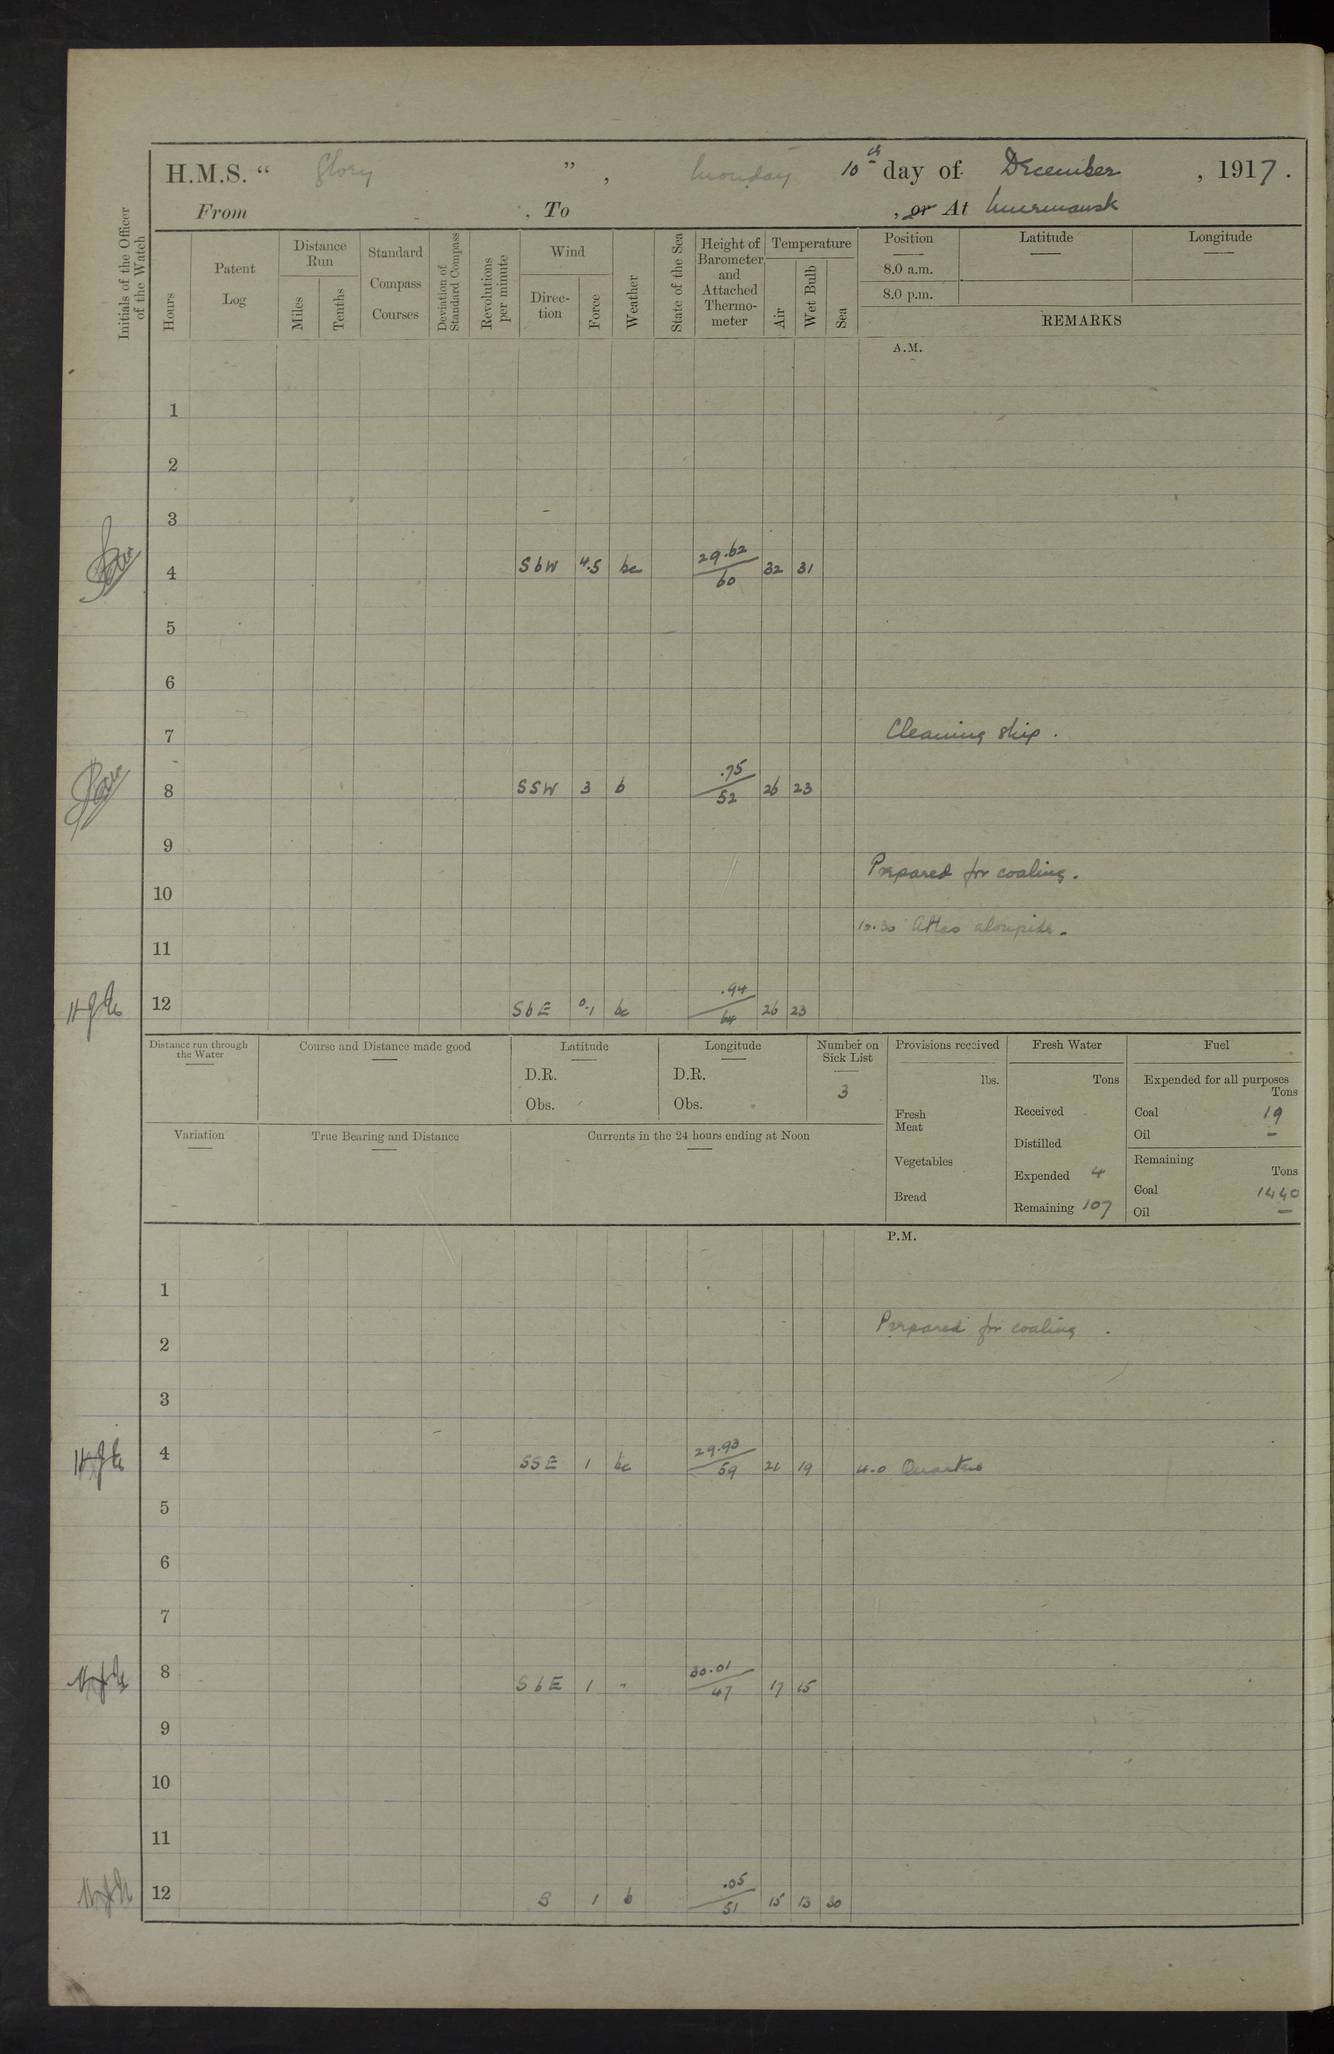 H.M.S. “ Glory ” , Monday 10th day of December , 1917.
From , To , or At Murmansk
Initials of the Officer of the Watch
Hours
Patent Log
Distance Run
Miles
Tenths
Standard Compass Courses
Deviation of Standard Compass
Revolutions per minute
Wind
Direction
Force
Weather
State of the Sea
Height of Barometer and Attached Thermometer
Temperature
Air
Wet Bulb
Sea
Position Latitude Longitude
8.0 a.m.
8.0 p.m.
REMARKS
A.M.
1
2
3
4 SbW 4.5 bc 29.62/60 32 31
5
6
7 Cleaning ship.
8 SSW 3 b .75/52 26 23
9
Prepared for coaling.
10
10.30 Attas alongside.
11
12 SbE 0.1 bc .94/64 26 23
Distance run through the Water
Course and Distance made good
Latitude
D.R.
Obs.
Longitude
D.R.
Obs.
Number on Sick List
3
Provisions received
lbs.
Fresh Meat
Vegetables
Bread
Fresh Water
Tons
Received
Distilled
Expended 4
Remaining 107
Fuel
Expended for all purposes
Tons
Coal 19
Oil –
Remaining
Tons
Coal 1440
Oil –
Variation
True Bearing and Distance
Currents in the 24 hours ending at Noon
P.M.
1
Prepared for coaling.
2
3
4 SSE 1 bc 29.93/59 21 19 4.0 Quarters
5
6
7
8 SbE 1 " 30.01/47 17 15
9
10
11
12 S 1 b .05/51 15 13 30